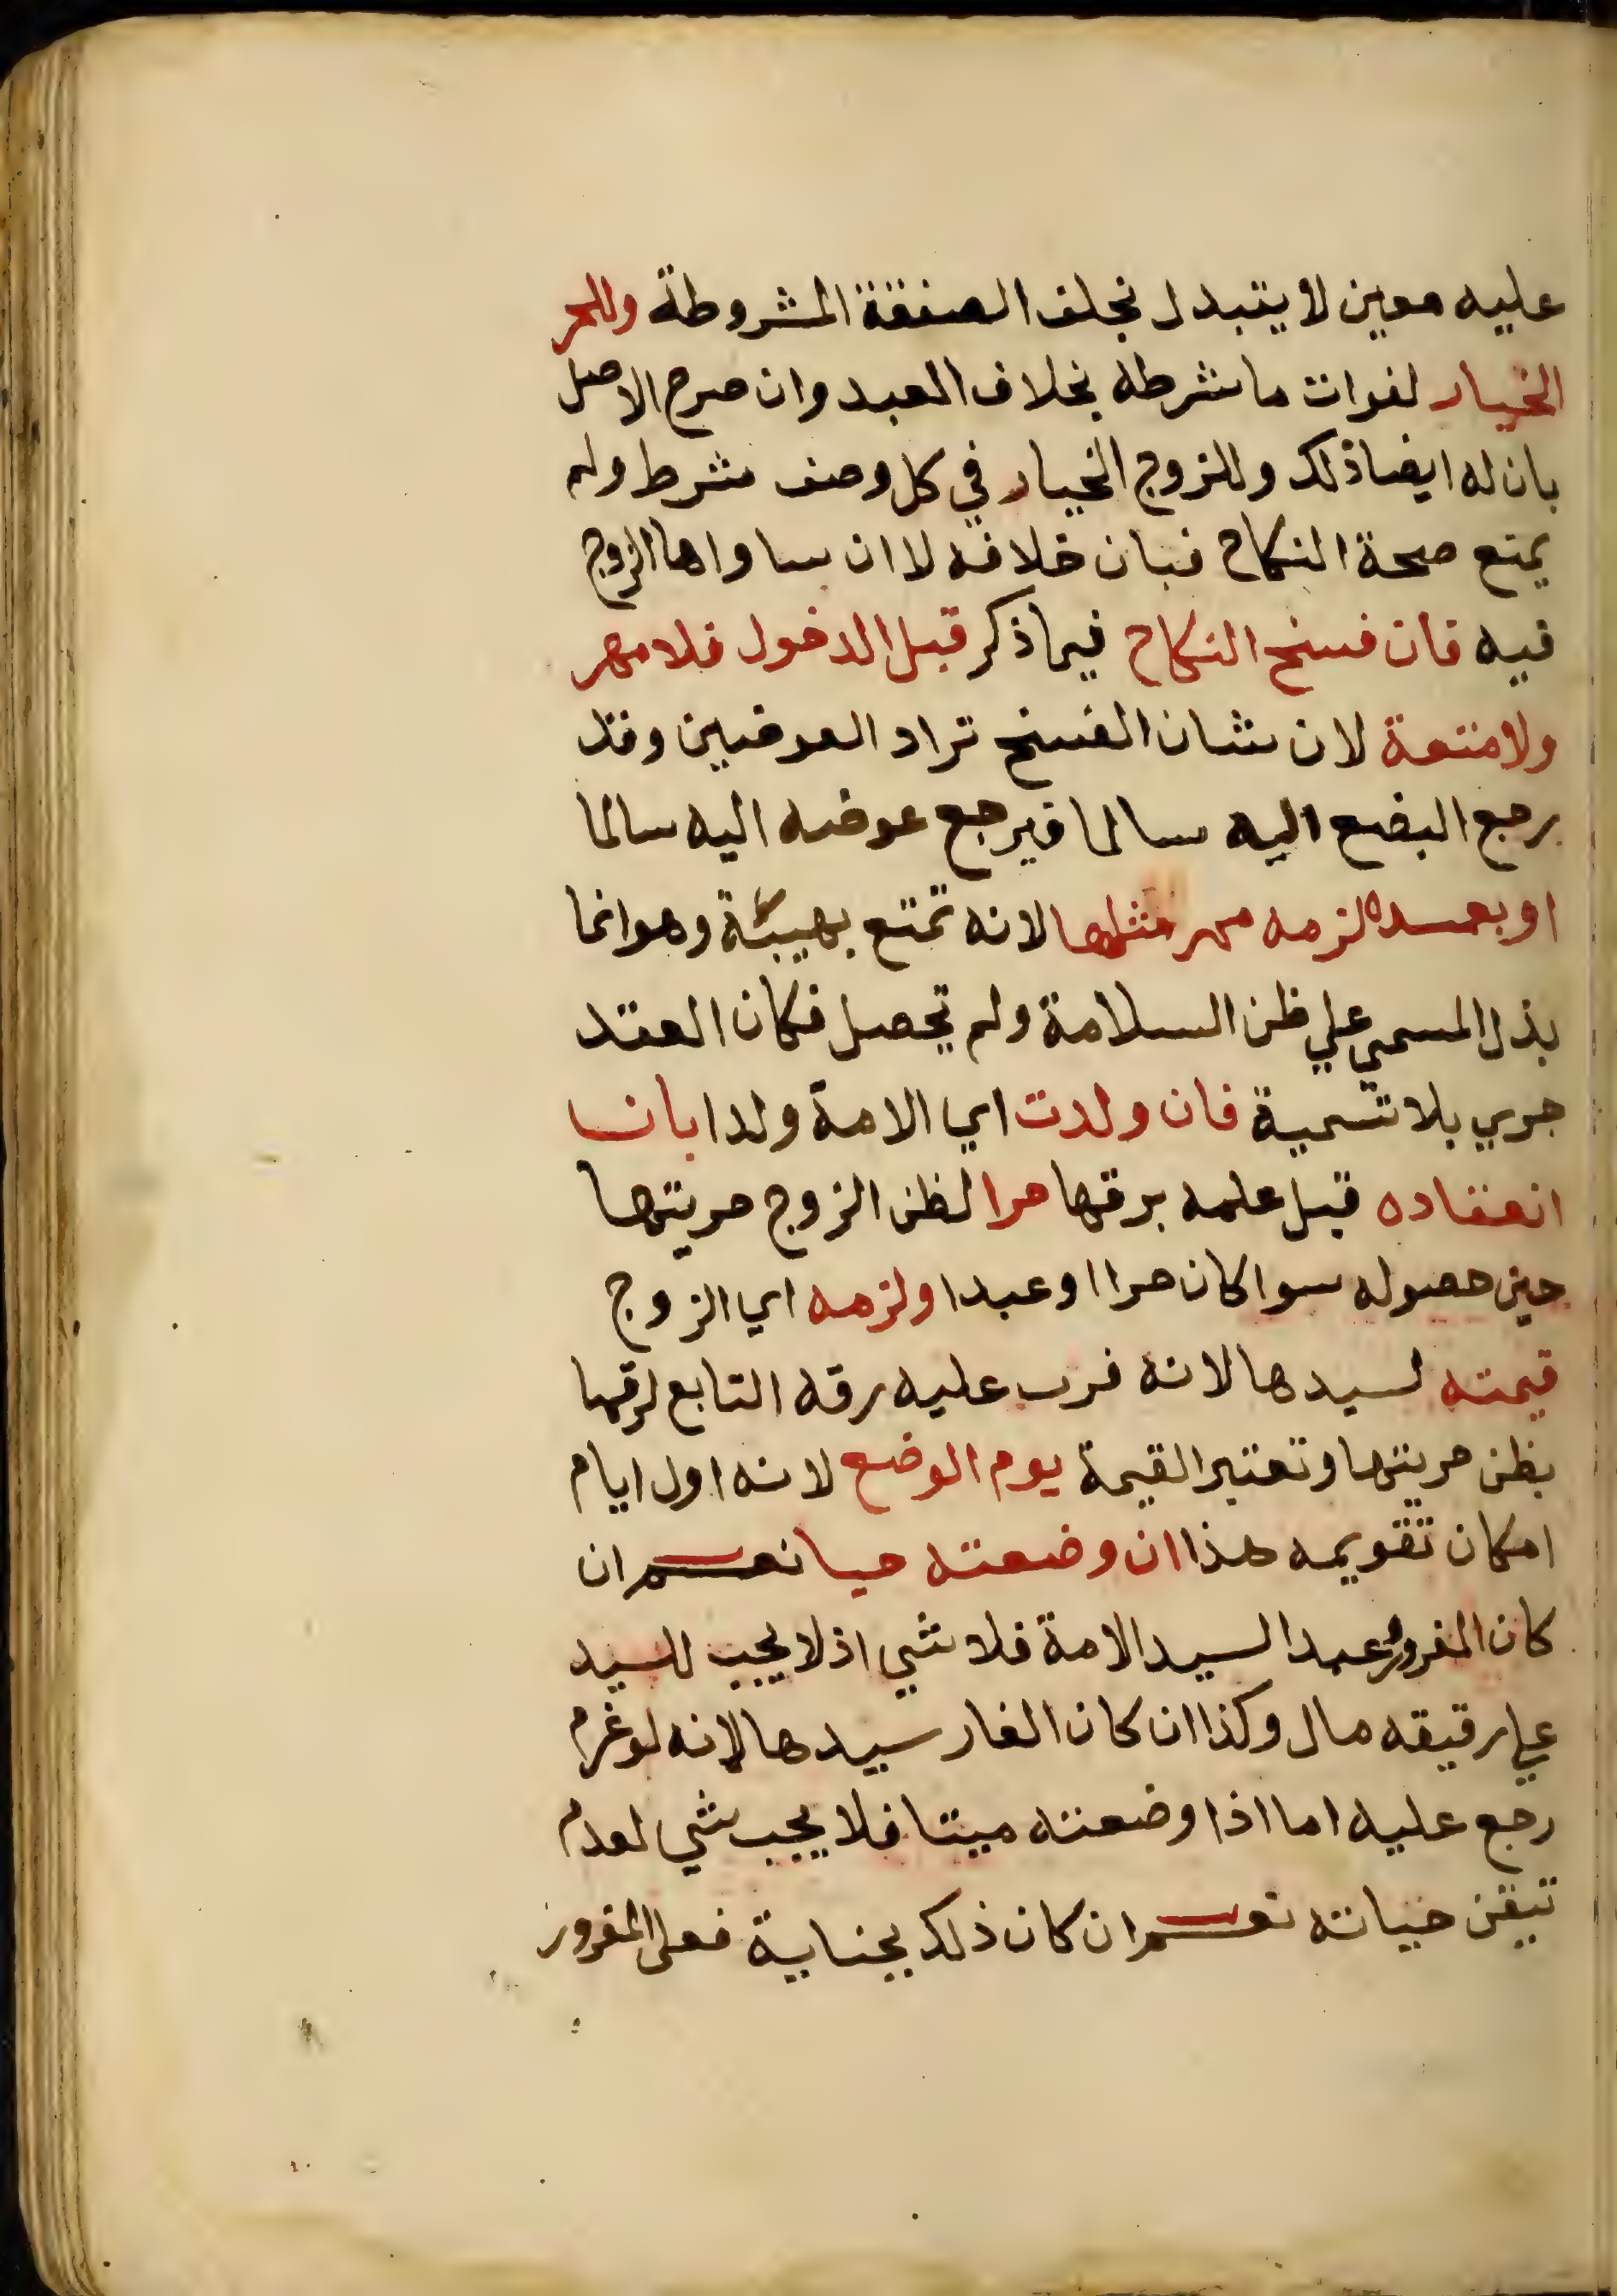 عليه معين لا يتبدل بخلف الصفقة المشروطة وللحر
الخيار لفوات ما شرطه بخلاف العبد وان صرح الاصل
بان له ايضا ذلك وللزوج الخيار في كل وصف شرط ولم
يمنع صحة النكاح فبان خلافه لا ان ساواها الزوج
فيه فان فسخ النكاح فيما ذكر قبل الدخول فلا مهر
ولا متعة لان شان الفسخ تراد العوضين وقد
رجع البضع اليه سالما فيرجع عوضه اليه سالما
او بعده لزمه مهر مثلها لانه تمتع بهيبئة وهو انما
بذل المسمي علي ظن السلامة ولم تحصل فكان العقد
جري بلا تسمية فان ولدت اي الامة ولدا بان
انعقاده قبل علمه برقها حرا لظن الزوج حريتها
حين حصوله سوا كان حرا او عبدا ولزمه اي الزوج
قيمته لسيدها لانه فوت عليه رقه التابع لرقها
بظن حريتها وتعتبر القيمة يوم الوضع لانه اول ايام
امكان تقويمه هذا ان وضعته حيا نعم ان
كان المغرور عبدا لسيد الامة فلا شي اذ لا يجب للسيد
علي رقيقه مال وكذا ان كان الغار سيدها لانه لو غرم
رجع عليه اما اذا وضعته ميتا فلا يجب شي لعدم
تيقن حياته نعم ان كان ذلك بجناية فعلى المغرور